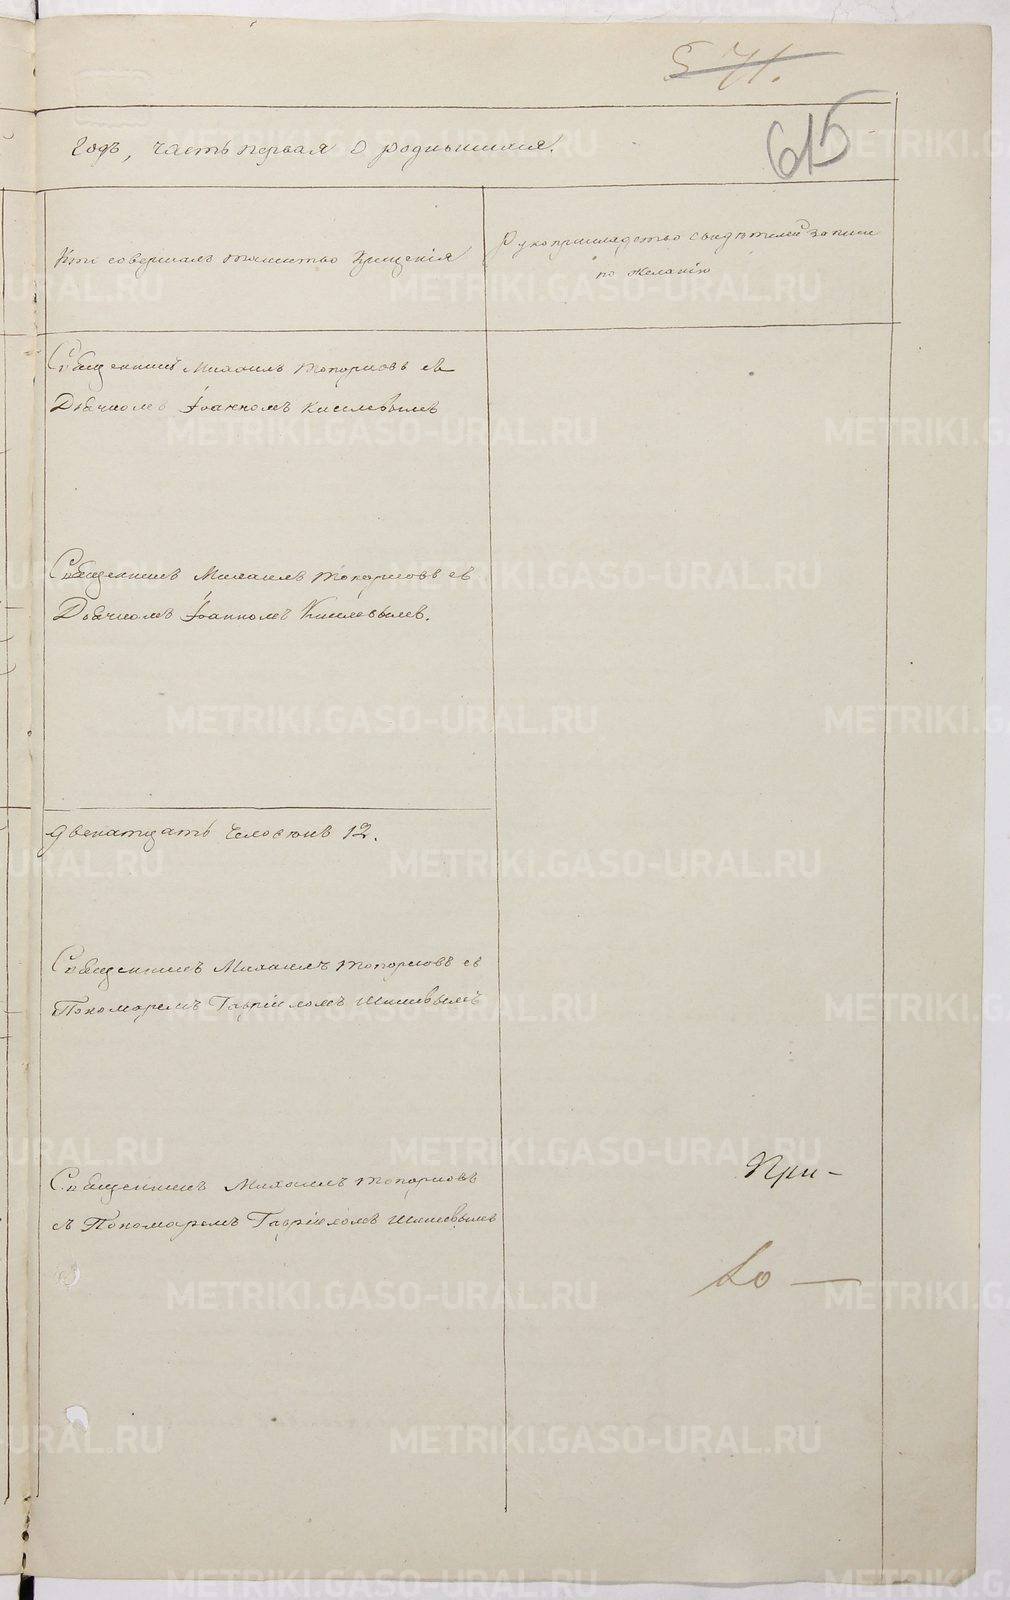 571.
615
годъ, часть первая о родившихся.
Кто совершалъ таинство Крещенія
Рукоприкладство свидѣтелей записи
по желанію
Священникъ Михаилъ Топорковъ съ
Дьячкомъ Іоанномъ Киселевымъ
Священникъ Михаилъ Топорковъ съ
Дьячкомъ Іоанномъ Киселевымъ.
двенатцать человѣкъ 12.
Священникъ Михаилъ Топорковъ съ
Пономаремъ Гавріиломъ
Священникъ Михаилъ Топорковъ
съ Пономаремъ Гавріиломъ
При-
METRIKI.GASO-URAL.RU